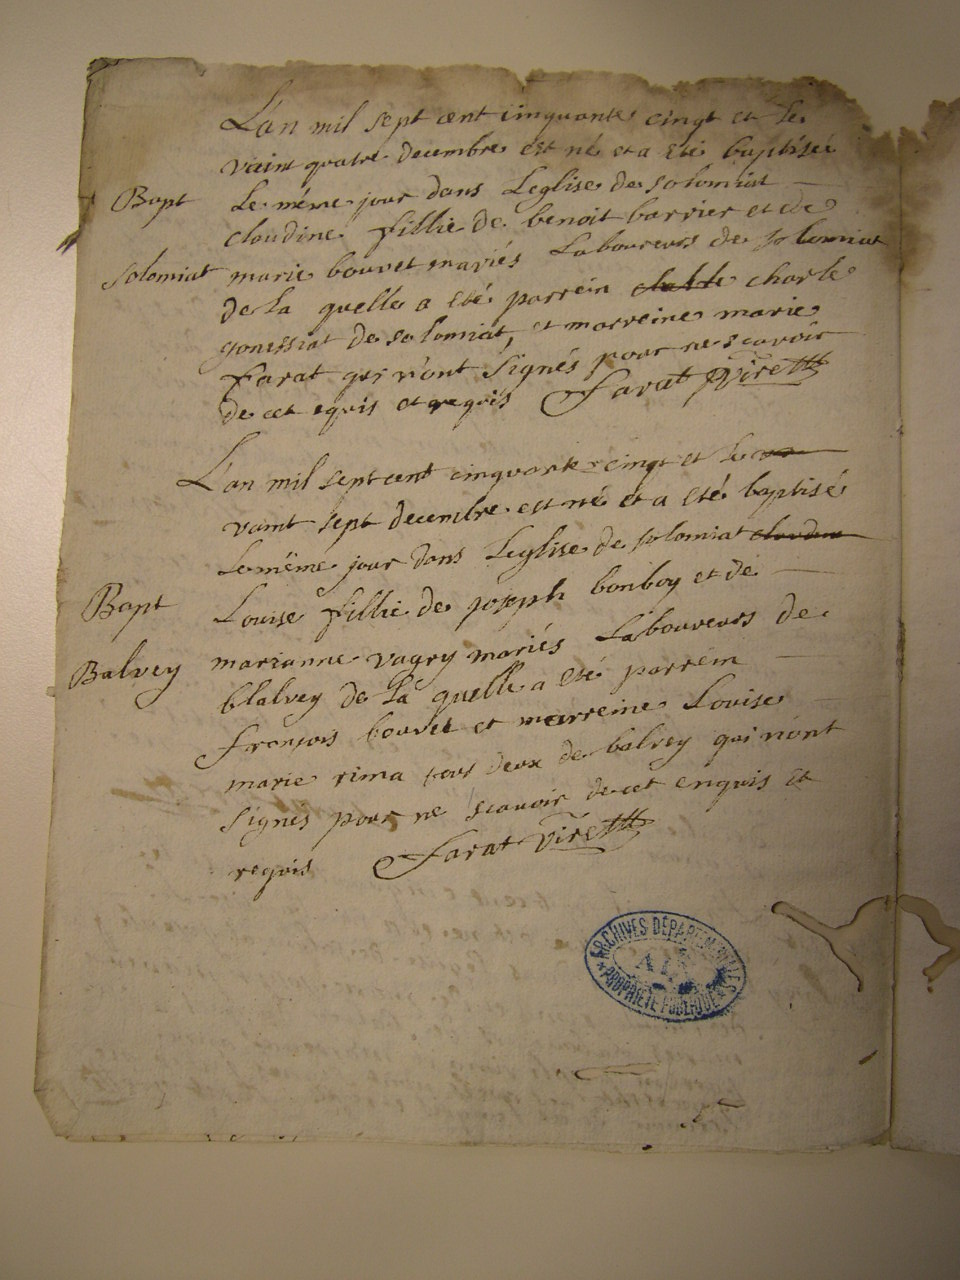 L'an mil sept cent cinquante cinqt et le
vaint quatre decembre est né et a eté baptiseé
Bapt
le méme jour dans Leglise de solomiat
claudine fillie de benoit barrier et de
Solomiat
marie bouvet mariés Laboureurs de solomiat
de la quelle a eté parrein charle
gonessiat de solomiat, et marreine marie
farat qui n'ont Signés pour ne scavoir
de cet equis et requis Farat Vire
L'an mil sept cent cinquante cinqt et le
vaint sept decembre est né et a eté baptisé
le méme jour dans Leglise de solomiat
Bapt
Louise fillie de joseph bonboy et de
Balvey
marianne vagry mariés Laboureurs de
blalvey de la quelle a eté parrein
françois bouvet et marreine Louise
marie rima tous deux de balvey qui n'ont
Signés pour ne scavoir de cet enquis et
requis Farat Vire
ARCHIVES DÉPARTEMENTALES
AIN
PROPRIÉTÉ PUBLIQUE